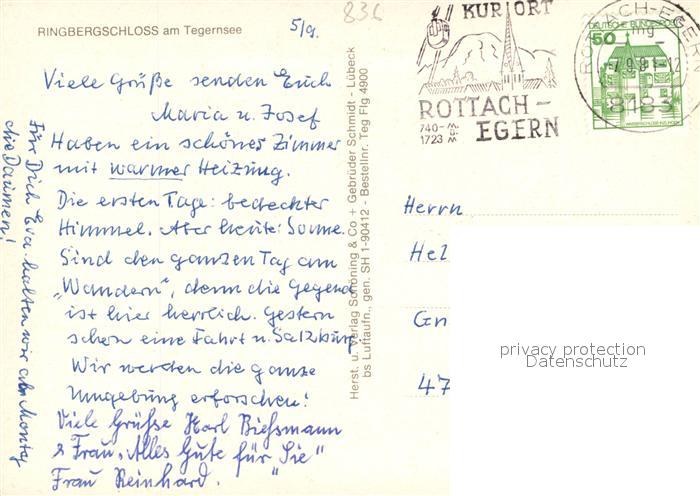 RINGBERGSCHLOSS am Tegernsee
5/9.
836
Viele Grüße senden Euch
Maria u. Josef
Haben ein schönes Zimmer
mit warmer Heizung.
Die ersten Tage: bedeckter
Himmel. Aber heute: Sonne.
Sind den ganzen Tag am
„Wandern", denn die Gegend
ist hier herrlich. Gestern
schon eine Fahrt n. Salzburg
Wir werden die ganze
Umgebung erforschen!
Viele Grüsse Karl Bießmann
& Frau. Alles Gute für „Sie"
Frau Reinhard.
Für Dich Eva halten wir ab Montag
die Daumen!
Herst. u. Verlag Schöning & Co + Gebrüder Schmidt - Lübeck
bs Luftaufn., gen. SH 1-90412 - Bestellnr. Teg Flg 4900
KURORT
ROTTACH-
EGERN
740-
1723 m
ROTTACH-EGERN
mg
-7.9.81-12
8183
DEUTSCHE BUNDESPOST
50
Herrn
Hel
Gn
47
privacy protection
Datenschutz